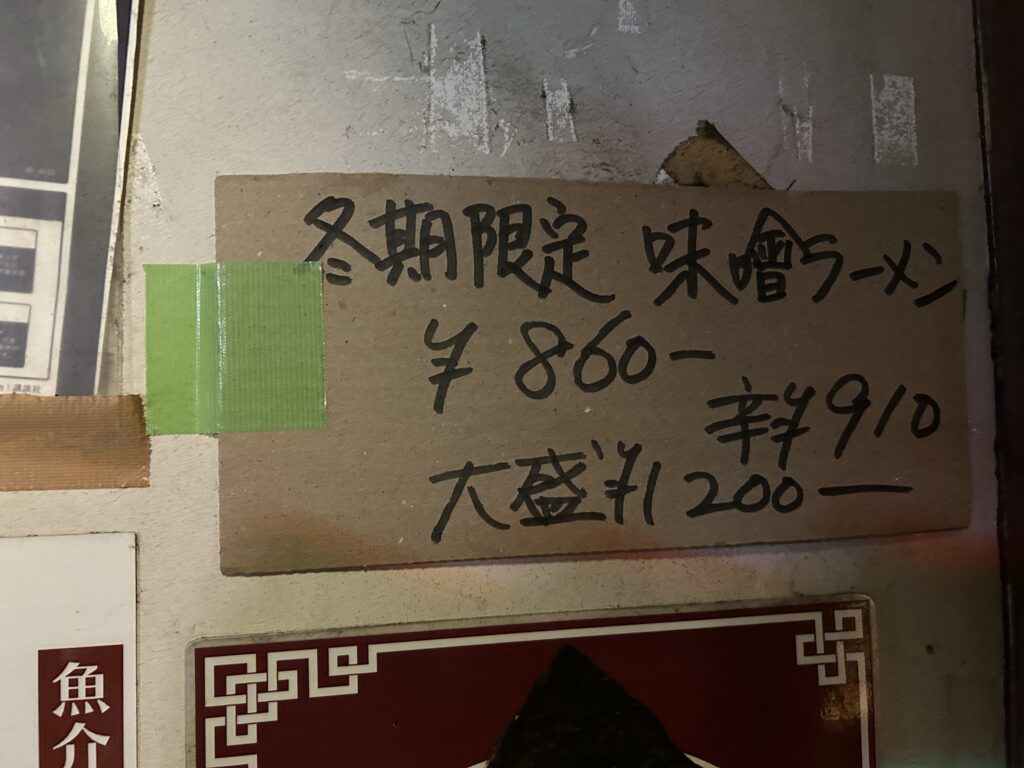 冬期限定 味噌ラーメン
¥ 860－
辛¥910
大盛¥1200－
魚介
講談社